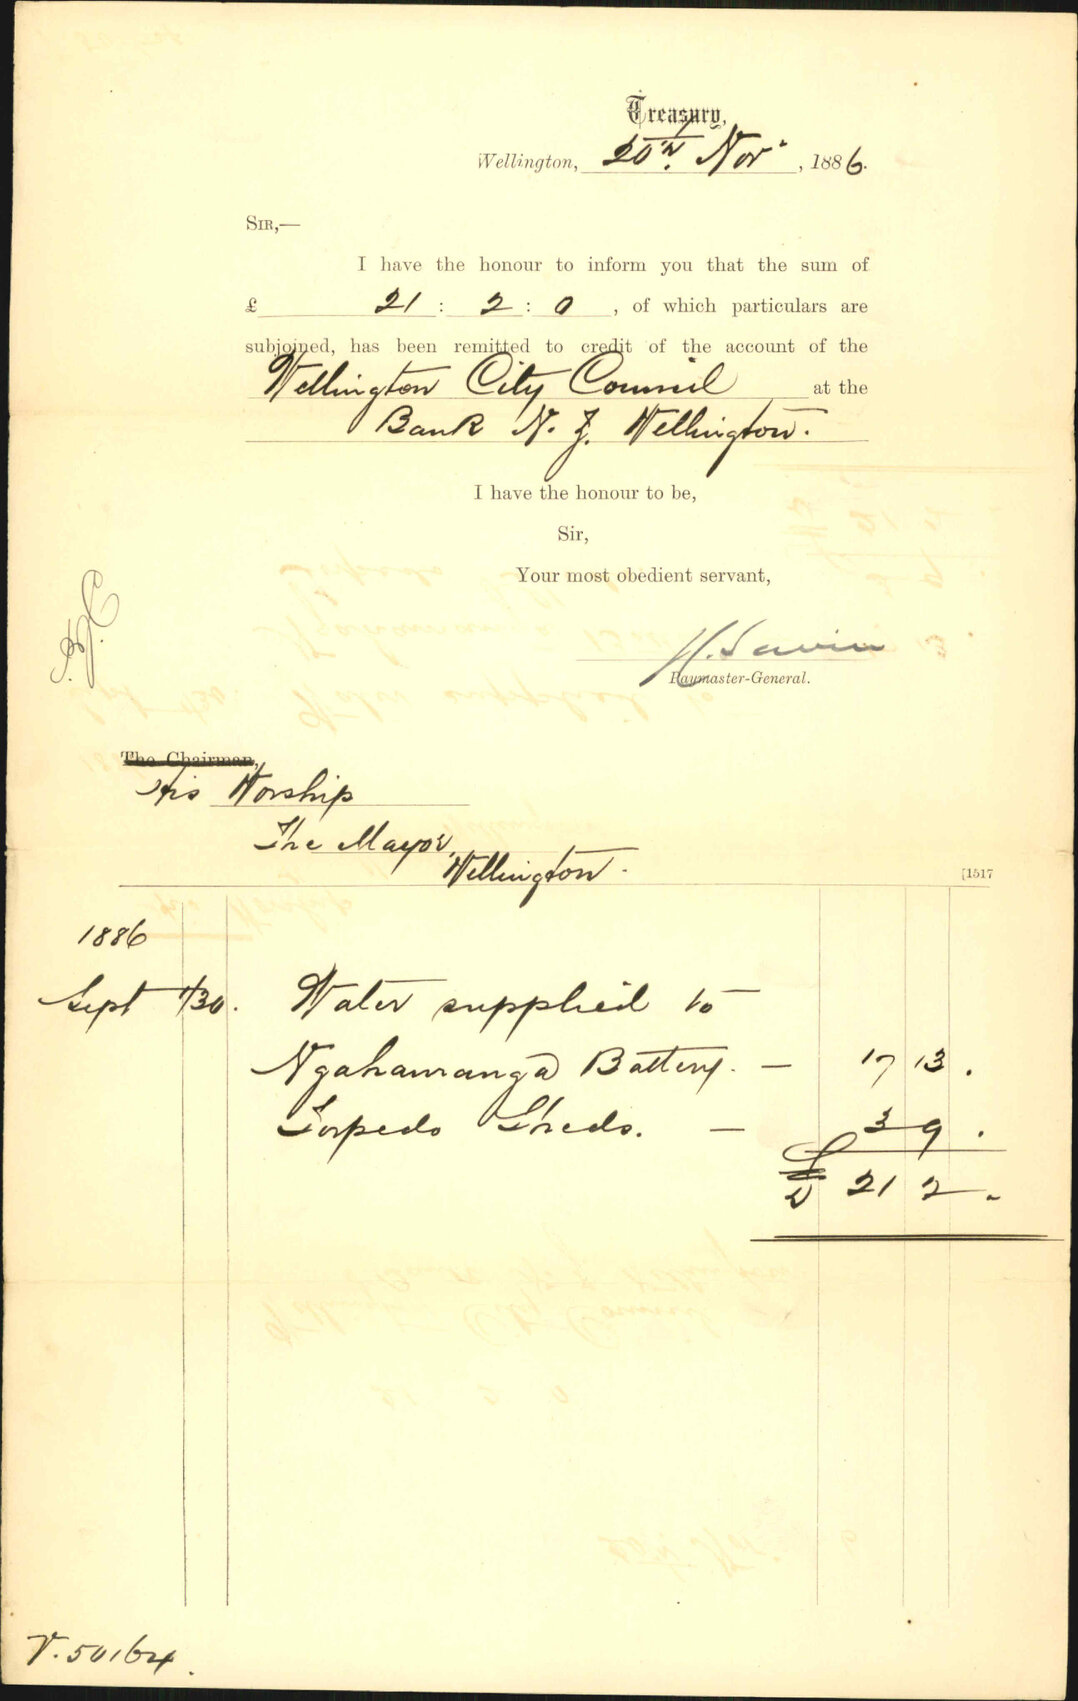 Treasury,
Wellington, 20th Nov., 1886.
SIR,—
I have the honour to inform you that the sum of
£ 21 : 2 : 0, of which particulars are
subjoined, has been remitted to credit of the account of the
Wellington City Council at the
Bank N. Z. Wellington.
I have the honour to be,
Sir,
Your most obedient servant,
Paymaster-General.
The Chairman,
His Worship
The Mayor,
Wellington.
[1517
1886
Sept 1/30. Water supplied to
Ngahauranga Battery. — 17 13 .
Torpedo Sheds. — 3 9 .
£ 21 2 .
V. 50164.